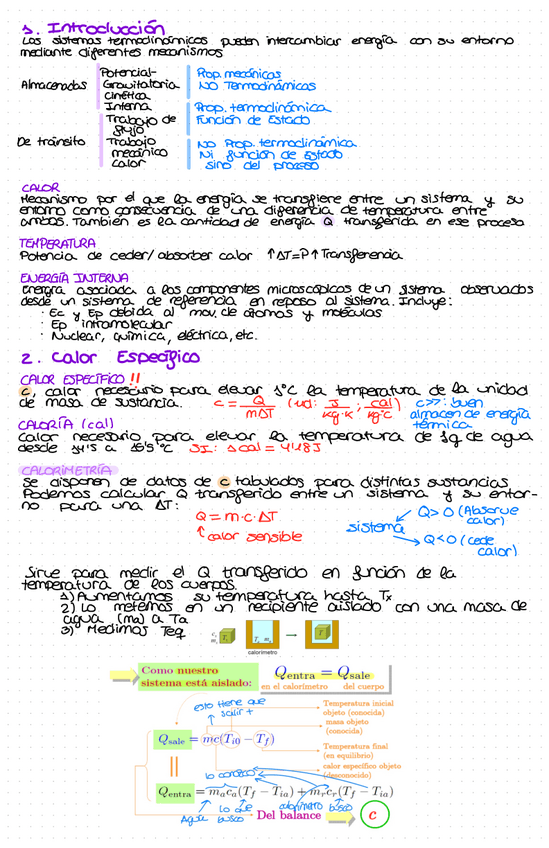 1. Introducción
Los sistemas termodinámicos pueden intercambiar energía con su entorno
mediante diferentes mecanismos
Almacenadas
Potencial-
Gravitatoria
Cinética
Interna
Prop. mecánicas
NO Termodinámicas
Prop. termodinámica
Función de Estado
De tránsito
Trabajo de
flujo
Trabajo
mecánico
Calor
No Prop. termodinámica
Ni función de estado
sino del proceso
CALOR
Mecanismo por el que la energía se transfiere entre un sistema y su
entorno como consecuencia de una diferencia de temperatura entre
ambos. También es la cantidad de energía Q transferida en ese proceso
TEMPERATURA
Potencia de ceder/absorber calor ↑ΔT=P↑Transferencia
ENERGÍA INTERNA
Energía asociada a los componentes microscópicos de un sistema observados
desde un sistema de referencia en reposo al sistema. Incluye:
· Ec y Ep debida al mov. de átomos y moléculas
· Ep intramolecular
· Nuclear, química, eléctrica, etc.
2. Calor Específico
CALOR ESPECÍFICO !!
c, calor necesario para elevar 1°C la temperatura de la unidad
de masa de sustancia. c = Q/mΔT (ud: J/kg·K ; cal/kg°C) c>>: buen
almacen de energía
térmica
CALORÍA (cal)
Calor necesario para elevar la temperatura de 1g de agua
desde 14'5 a 15'5 °C SI: 1cal = 4'18J
CALORIMETRÍA
Se disponen de datos de c tabulados para distintas sustancias
Podemos calcular Q transferido entre un sistema y su entor-
no para una ΔT:
Q = m·c·ΔT
↑ calor sensible
sistema
Q>0 (Absorve
calor)
Q<0 (cede
calor)
Sirve para medir el Q transferido en función de la
temperatura de los cuerpos.
1) Aumentamos su temperatura hasta Tx
2) Lo metemos en un recipiente aislado con una masa de
agua (ma) a Ta
3) Medimos Teq
calorímetro
Como nuestro
sistema está aislado:
Qentra = Qsale
en el calorímetro del cuerpo
esto tiene que
salir +
Temperatura inicial
objeto (conocida)
masa objeto
(conocida)
Qsale = mc(Ti0 − Tf)
Temperatura final
(en equilibrio)
calor específico objeto
(desconocido)
lo conozco
Qentra = maca(Tf − Tia) + mrcr(Tf − Tia)
Agua
lo que
busco
calorímetro
busco
Del balance
c